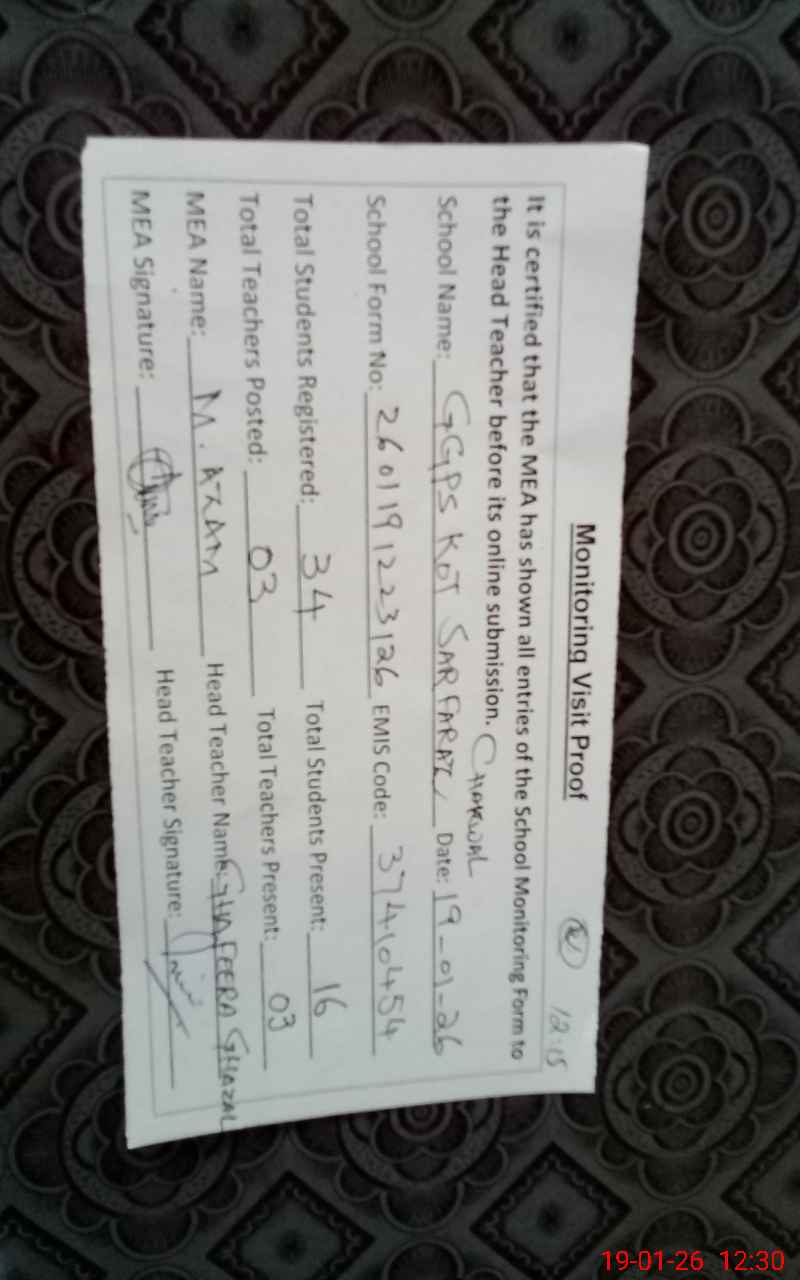 Monitoring Visit Proof
12:15
It is certified that the MEA has shown all entries of the School Monitoring Form to
the Head Teacher before its online submission.
CHAKWAL
School Name: GGPS KOT SARFARAZ Date: 19-01-26
School Form No: 2601191223126 EMIS Code: 37410454
Total Students Registered: 34 Total Students Present: 16
Total Teachers Posted: 03 Total Teachers Present: 03
MEA Name: M. AZAM Head Teacher Name: GHAZAL
MEA Signature: Head Teacher Signature:
19-01-26 12:30